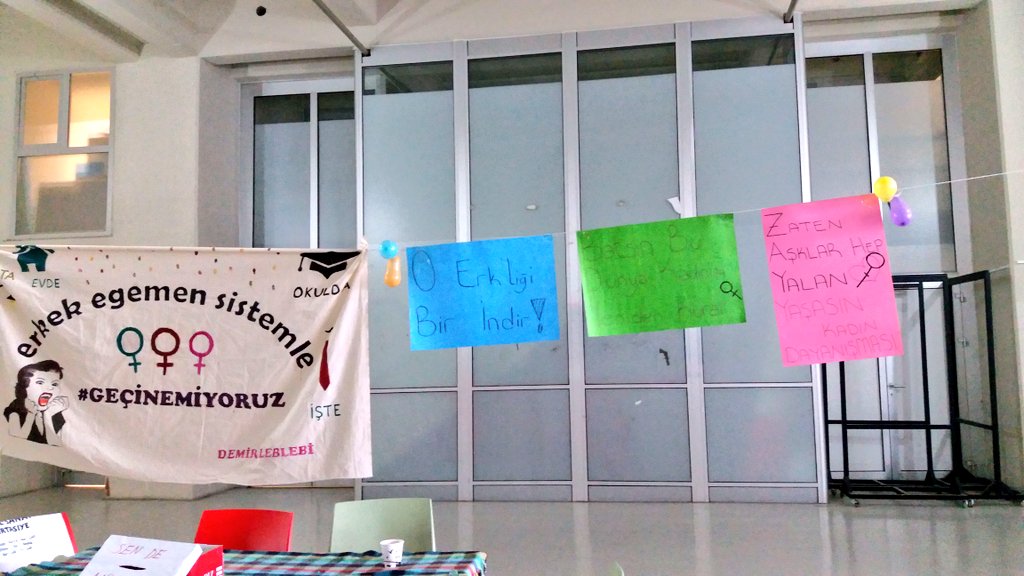 TA
EVDE
OKULDA
erkek egemen sistemle
#GEÇİNEMİYORUZ
İŞTE
DEMİRLEBLEBİ
O Erkliği
Bir İndir!
Bu
ZATEN
AŞKLAR HEP
YALAN
YAŞASIN
KADIN
DAYANIŞMASI
SEN DE